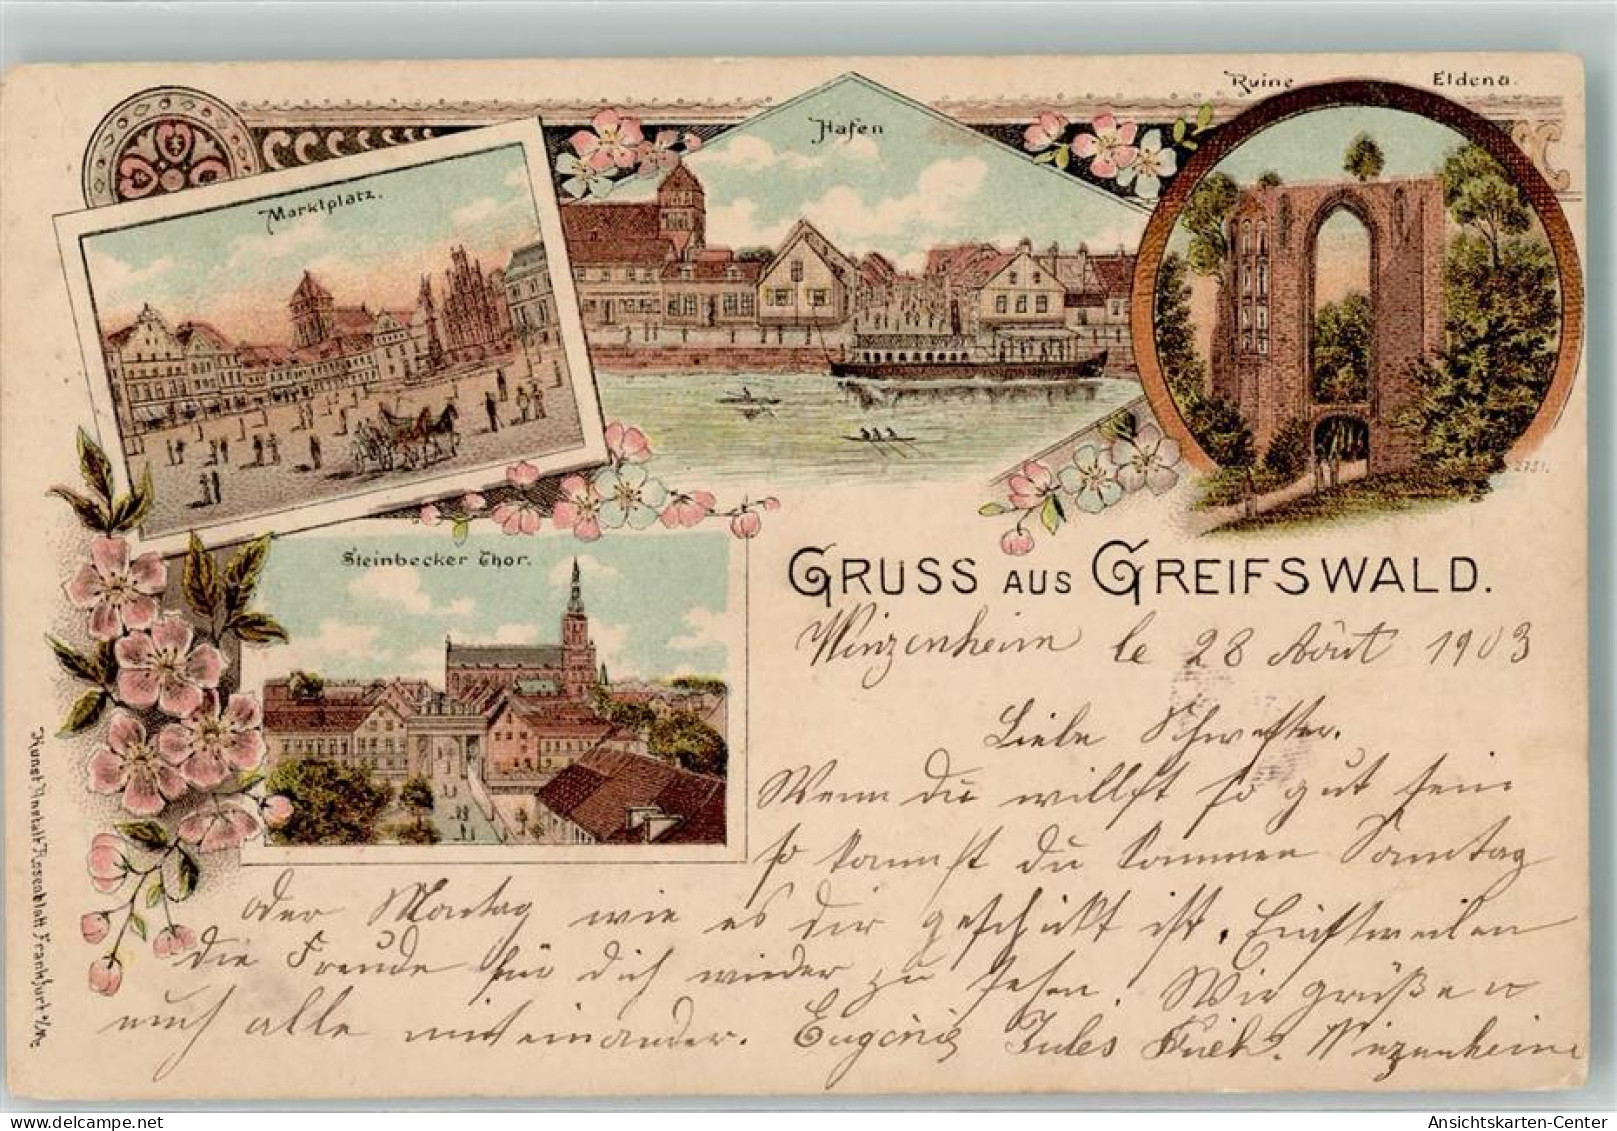 Ruine Eldena.
Hafen
Marktplatz.
2751.
Steinbecker Thor.
GRUSS AUS GREIFSWALD.
Winzenheim le 28 Août 1903
Liebe Schwester.
Wenn du willst so gut sein
so kannst du kommen Sonntag
oder Montag wie es dir geschickt ist. Einstweilen
die Freude für dich wieder zu sehen. Wir grüßen
euch alle miteinander. Eugenie Jules Winzenheim
Kunst Anstalt Rosenblatt Frankfurt a/M.
Ansichtskarten-Center